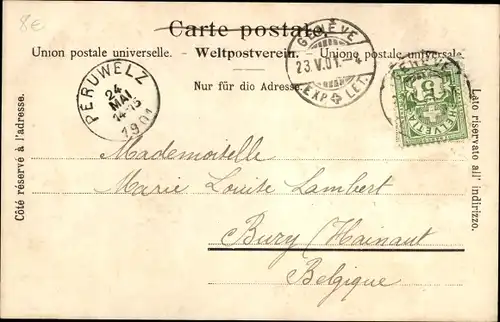 8€
Carte postale.
Union postale universelle. - Weltpostverein. - Unione postale universale.
Nur für die Adresse.
GENÈVE
23.V.01.-4
EXP. LET.
PERUWELZ
24
MAI
14-15
1901
GENÈVE
5
HELVETIA
Côté réservé à l'adresse.
Lato riservato all' indirizzo.
Mademoiselle
Marie Louise Lambert
Bury (Hainaut
Belgique